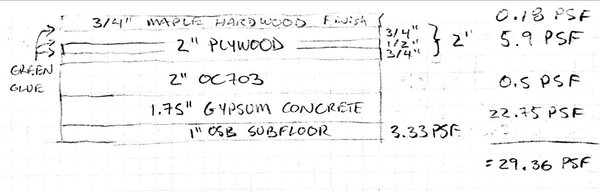 3/4" MAPLE HARDWOOD FINISH 0.18 PSF
GREEN GLUE
2" PLYWOOD 3/4" 1/2" 3/4" } 2" 5.9 PSF
2" OC703 0.5 PSF
1.75" GYPSUM CONCRETE 22.75 PSF
1" OSB SUBFLOOR 3.33 PSF
= 29.36 PSF